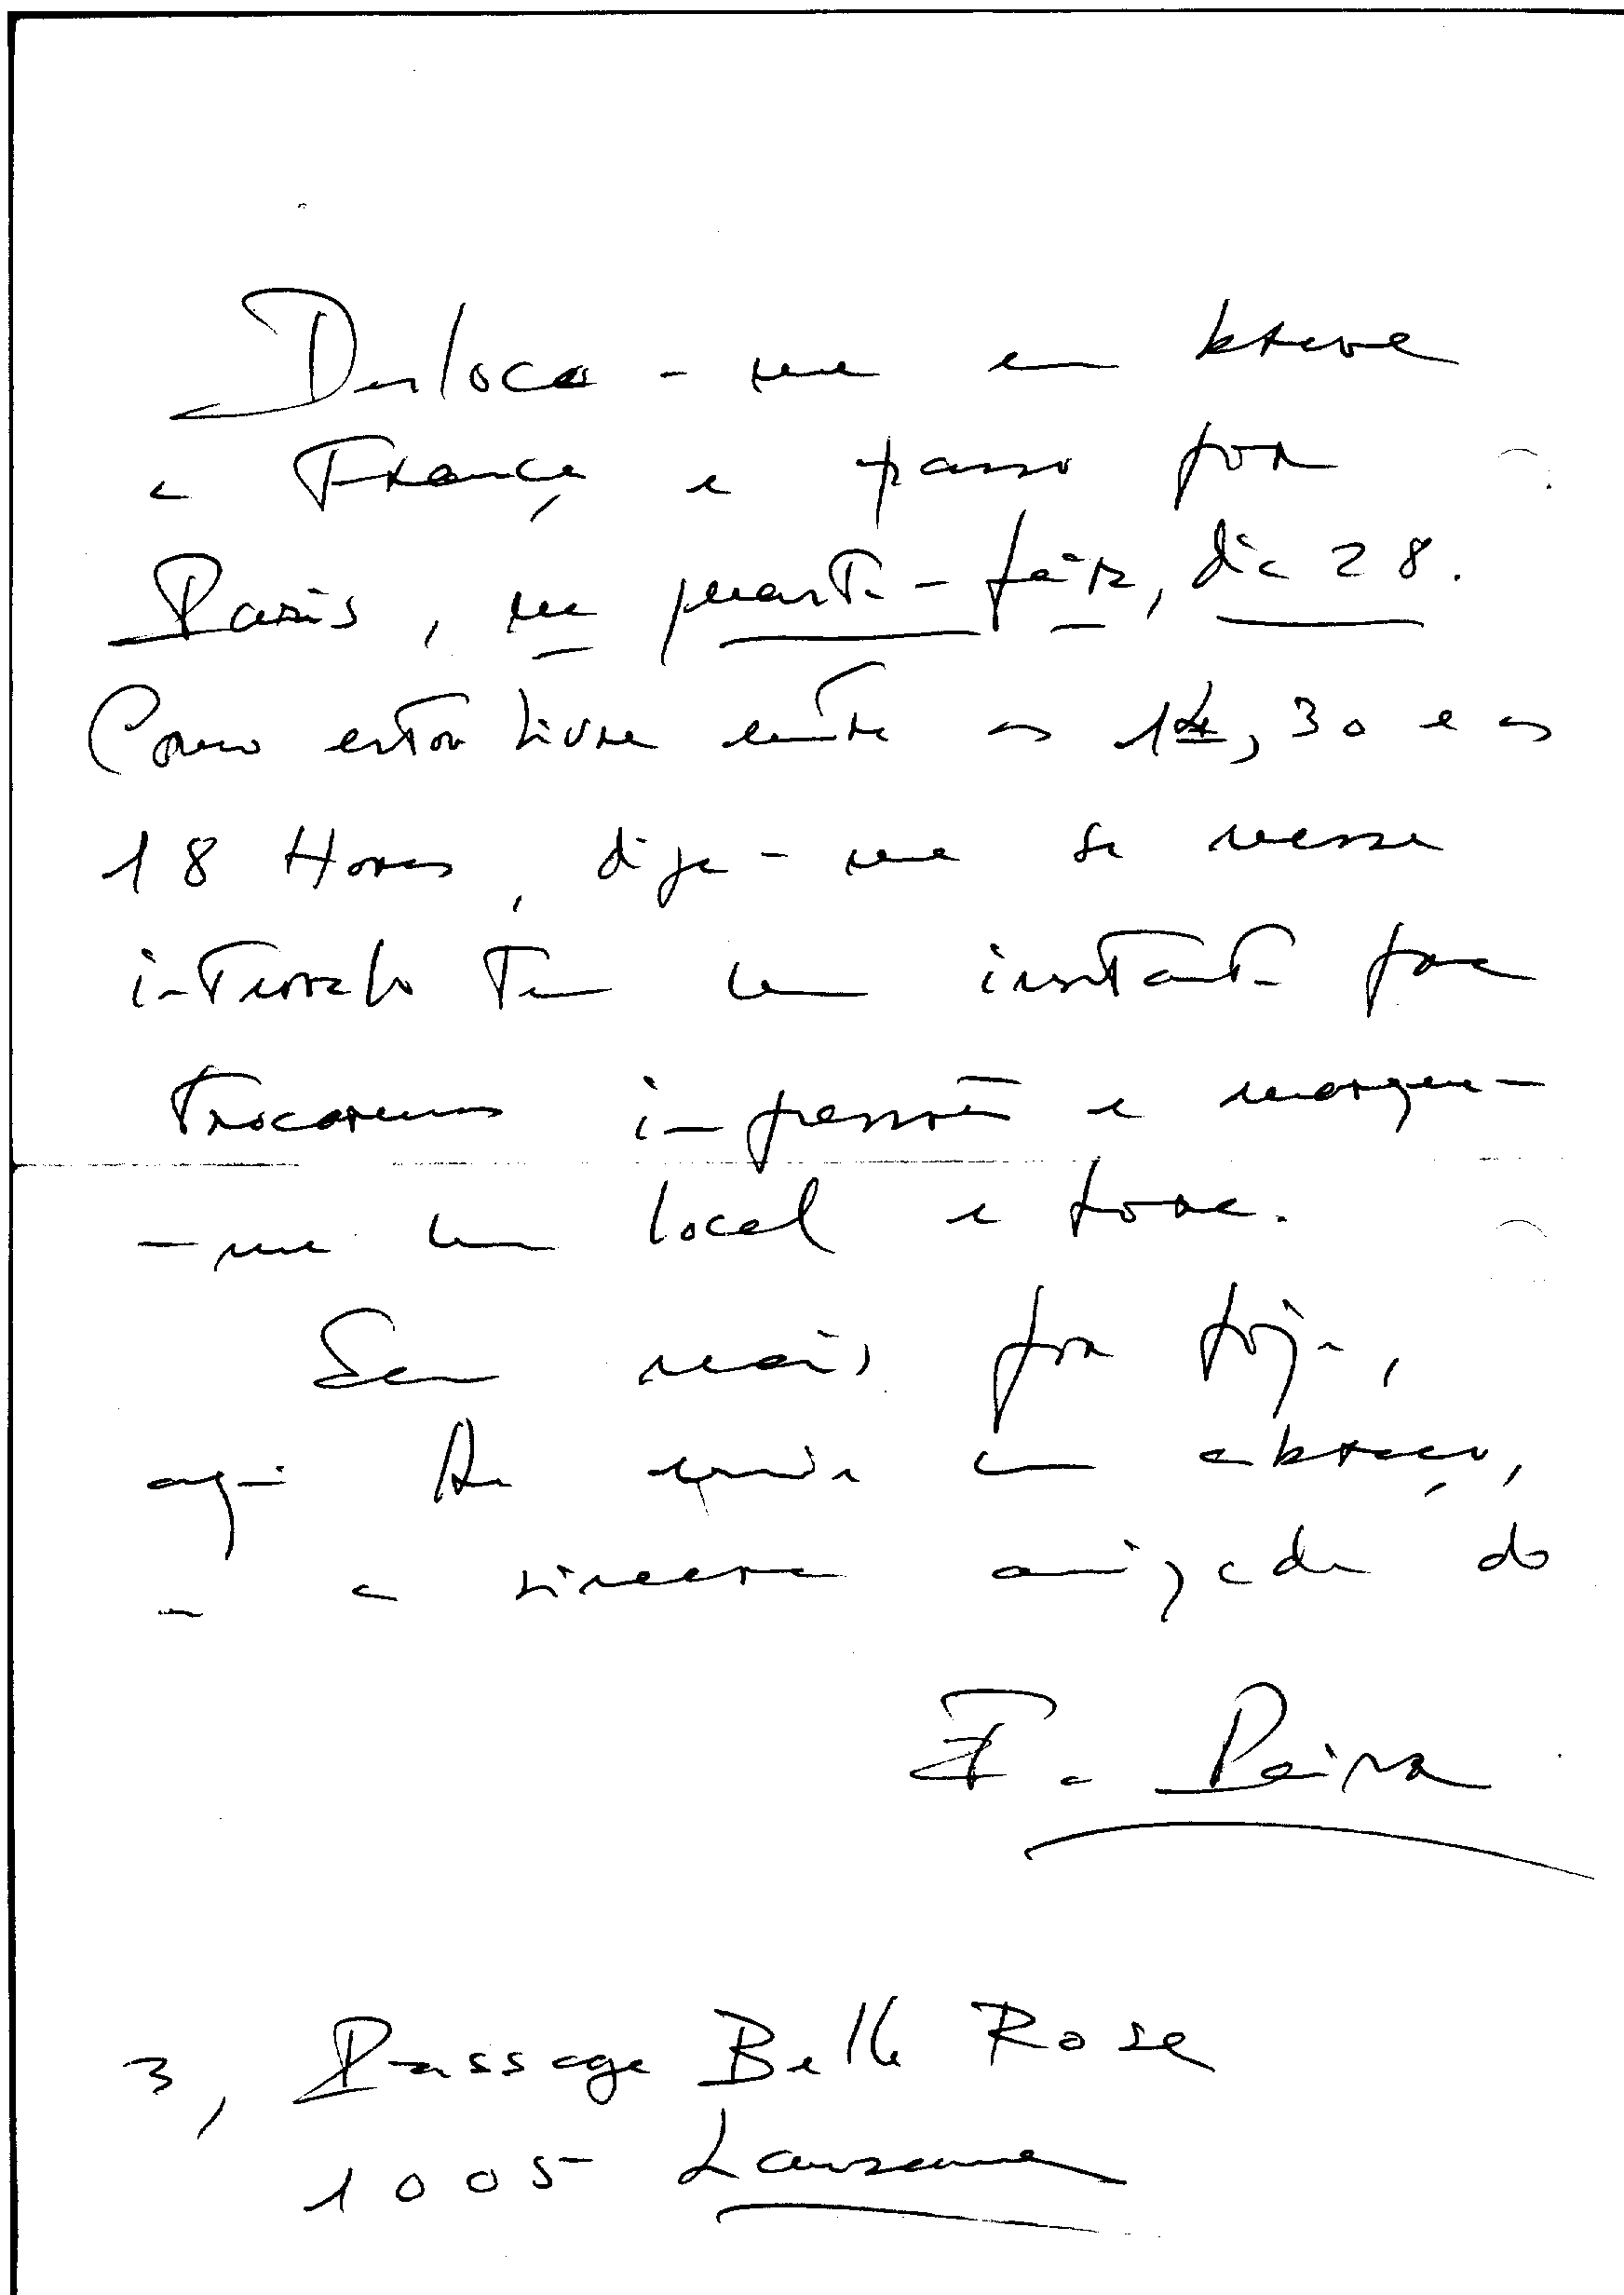 Desloco-me em breve
a França e passo por
Paris, na quarta-feira, dia 28.
Como estou livre entre as 14,30 e as
18 Horas, diga-me se nesse
intervalo tem um instante para
trocarmos impressões e marque-
-me um local e hora.
Sem mais por hoje,
aqui lhe envio um abraço,
e a sincera amizade do
F. Peira
3, Passage Belle Rose
1005 Lausanne